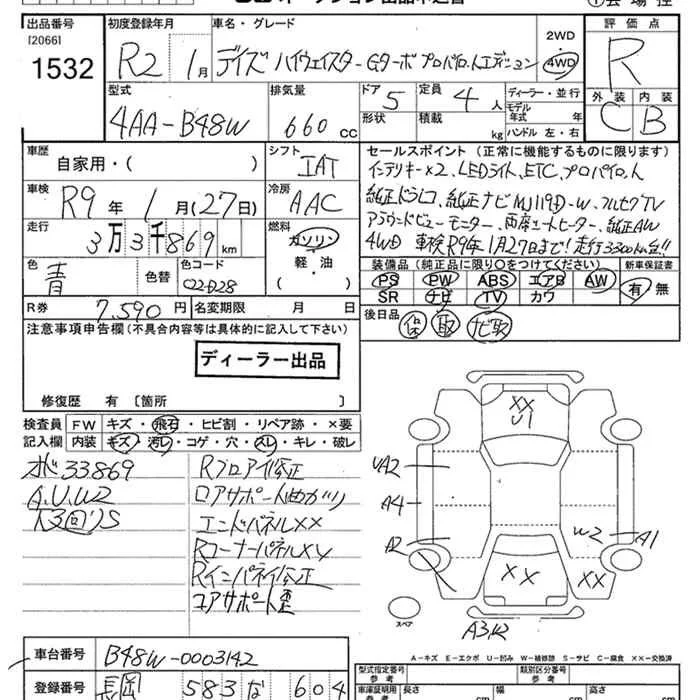 オークション出品申込書
①会場控
出品番号
[2066]
1532
初度登録年月
R2 1月
車名・グレード
デイズ ハイウェイスターGターボ プロパイロットエディション
2WD
4WD
評価点
R
外装 内装
C B
型式
4AA-B48W
排気量
660 cc
ドア
5
形状
定員
4人
積載 kg
ディーラー・並行
モデル年式 年式
ハンドル 左・右
車歴
自家用・( )
シフト
IAT
車検
R9年 1月(27日)
冷房
AAC
走行
3万3千869km
燃料
ガソリン
軽・油
色
青
色替
色コード
R券
7,590円
名変期限 月 日
セールスポイント(正常に機能するものに限ります)
インテリキー×2、LEDライト、ETC、プロパイロット
純正ドラレコ、純正ナビMJ119D-W、フルセグTV
アラウンドビューモニター、両席シートヒーター、純正AW
4WD 車検R9年1月27日まで!走行3300km台!!
装備品(純正品に限り○をつけてください)
新車保証書
PS PW ABS エアB AW
SR ナビ TV カワ
有 無
後日品
保 取 ナビ取
注意事項申告欄(不具合内容等は具体的に記入して下さい)
ディーラー出品
修復歴 有 [箇所 ]
検査員記入欄
FW キズ・飛石・ヒビ割・リペア跡・×要
内装 キズ・汚レ・コゲ・穴・スレ・キレ・破レ
33869
A.U.W2
Rフロアイ修正
ロアサポート曲ガリ
エンドパネル××
Rコーナーパネル××
Rインパネイ修正
コアサポート歪
××
U1
UA2
A4
A2
W2
A1
××
××
スペア
A3
A-キズ E-エクボ U-凹み W-補修跡 S-サビ C-腐食 ××-交換済
車台番号
B48W-0003142
登録番号
長岡 583 な 604
型式指定番号
参考
類別区分番号
参考
車庫証明用
参考
長さ cm
幅 cm
高さ cm